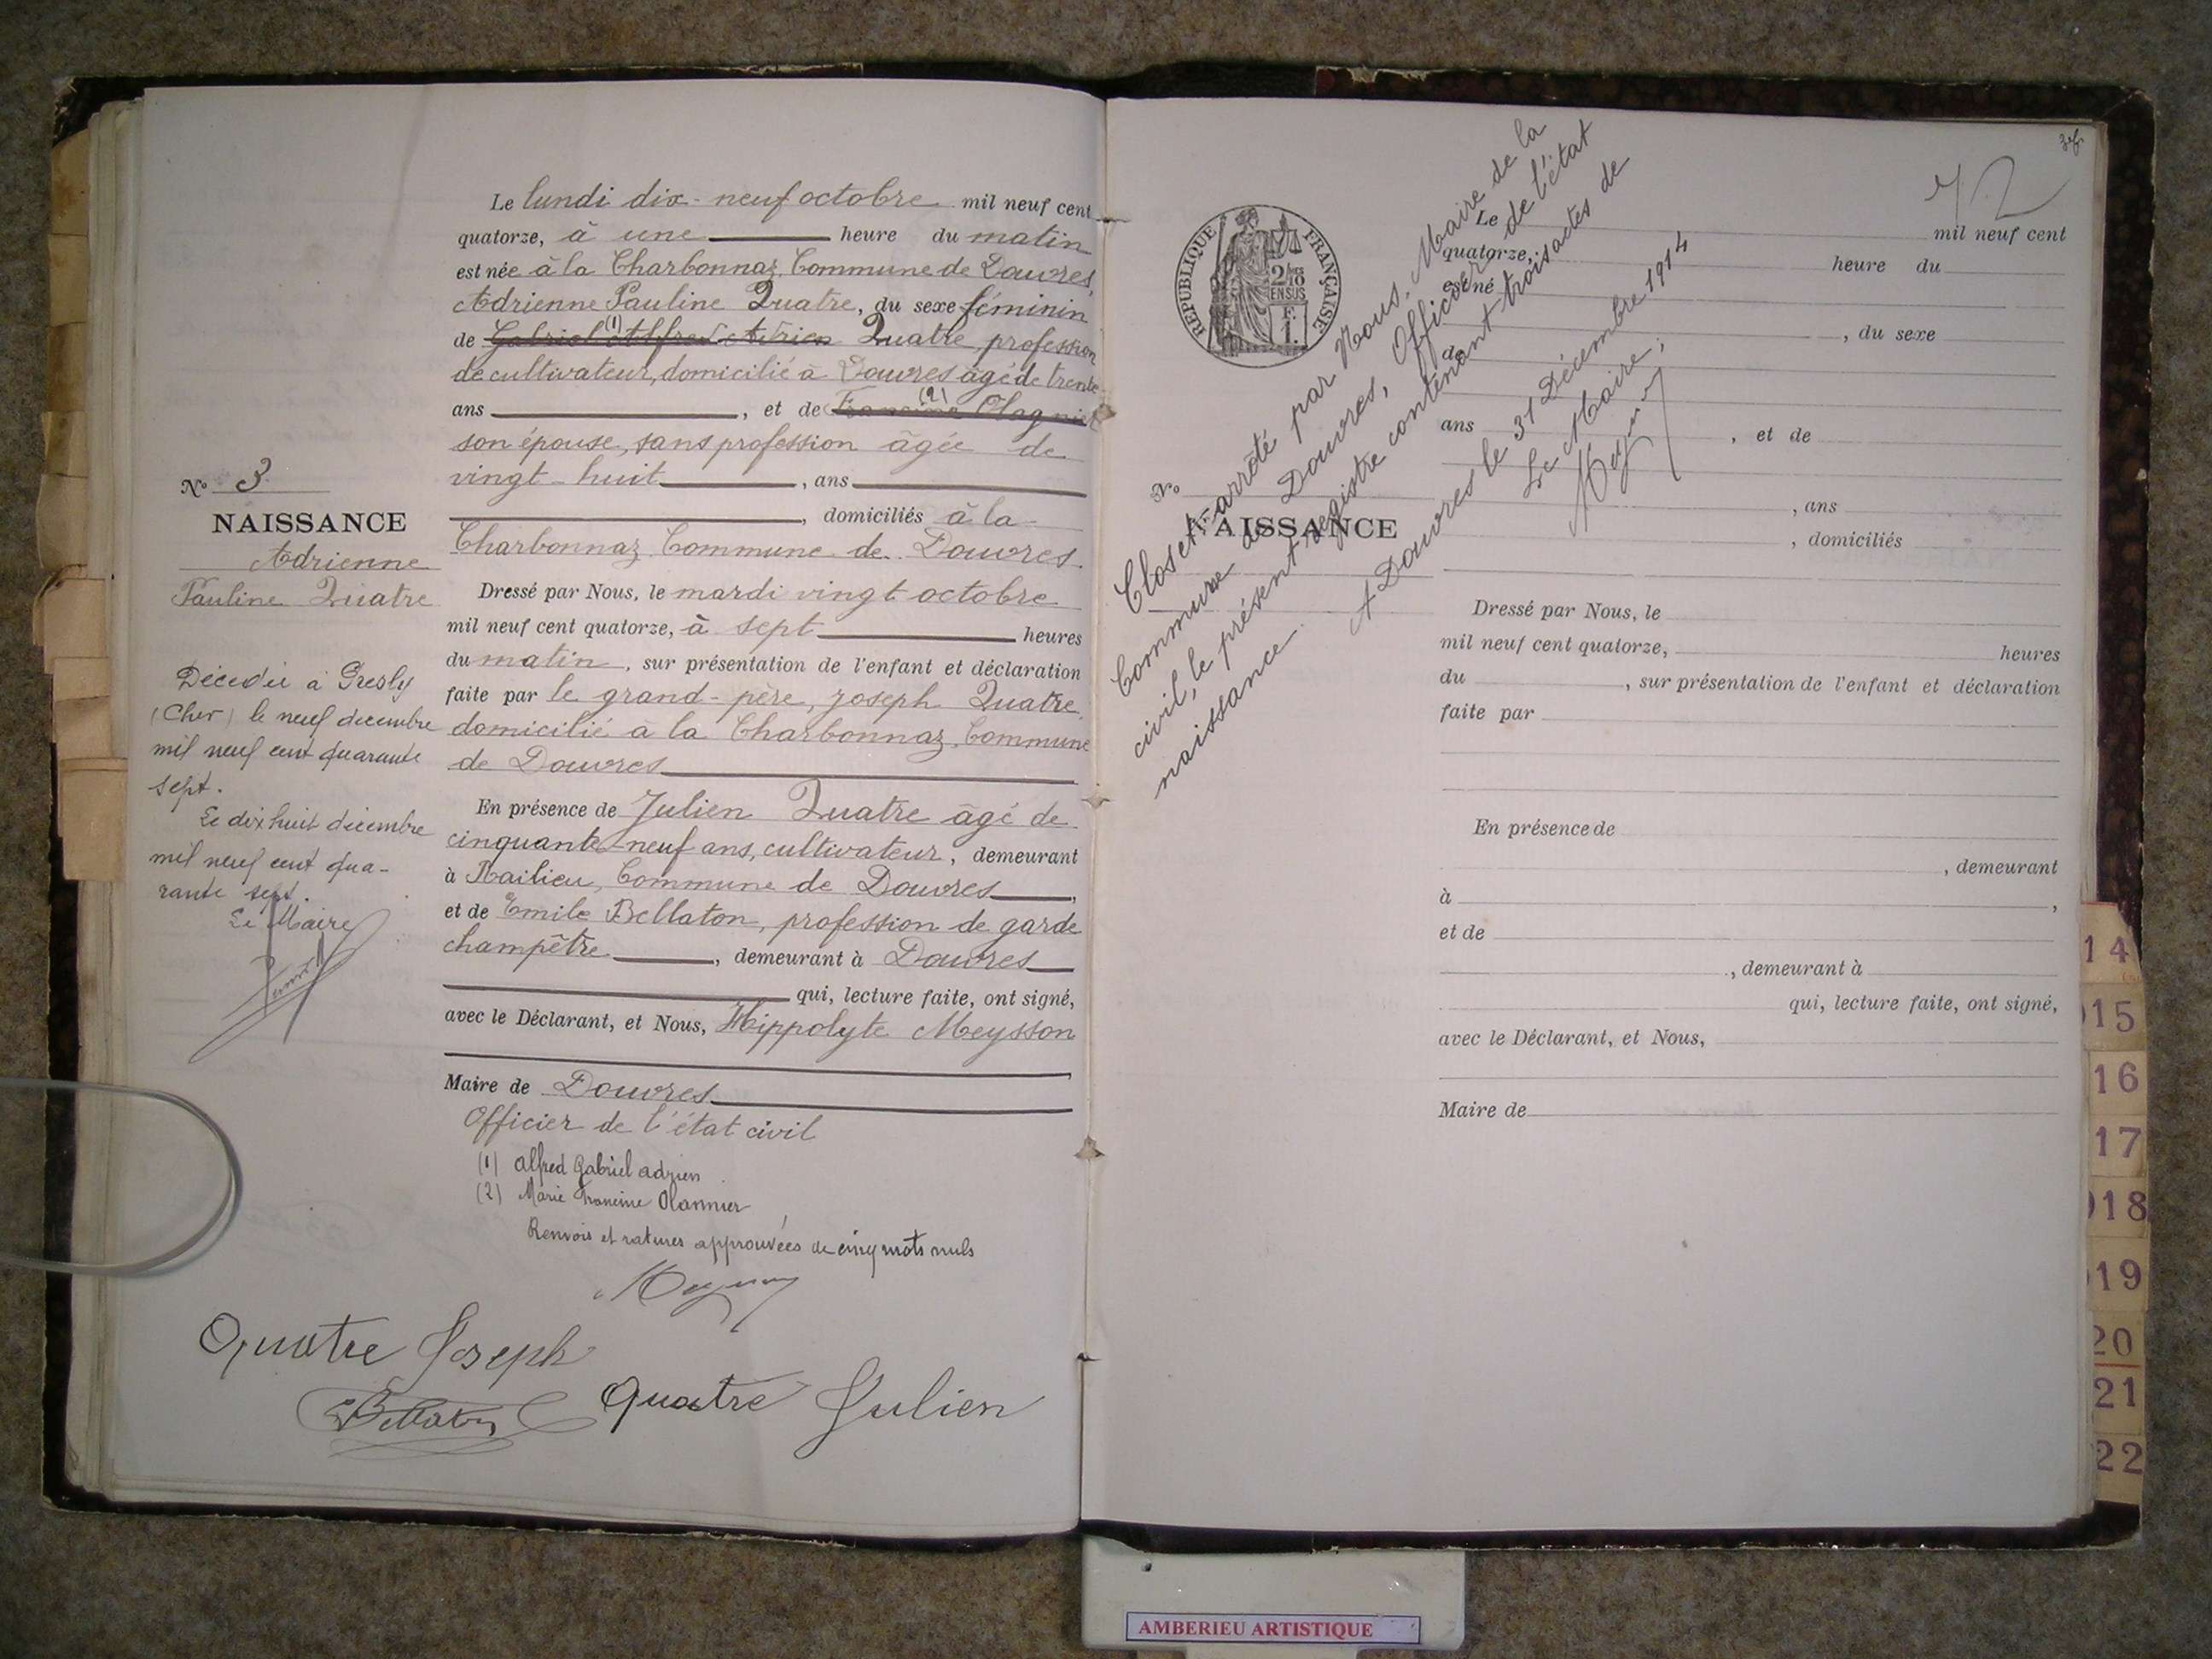 Le lundi dix-neuf octobre mil neuf cent
quatorze, à une heure du matin
est née à la Charbonnaz, Commune de Douvres,
Adrienne Pauline Quatre, du sexe féminin
de Gabriel (1) Alfred Adrien Quatre, profession
de cultivateur, domicilié à Douvres âgé de trente
ans , et de Francine (2) Olagnier
son épouse, sans profession âgée de
vingt-huit , ans
, domiciliés à la
Charbonnaz, Commune de Douvres.
Dressé par Nous, le mardi vingt octobre
mil neuf cent quatorze, à sept heures
du matin, sur présentation de l'enfant et déclaration
faite par le grand-père, Joseph Quatre,
domicilié à la Charbonnaz, Commune
de Douvres
En présence de Julien Quatre âgé de
cinquante-neuf ans, cultivateur, demeurant
à Railieu, Commune de Douvres ,
et de Emile Bellaton, profession de garde
champêtre , demeurant à Douvres
qui, lecture faite, ont signé,
avec le Déclarant, et Nous, Hippolyte Meysson
Maire de Douvres
Officier de l'état civil
(1) Alfred Gabriel adrien
(2) Marie Francine Olannier
Renvois et ratures approuvées de cinq mots nuls
Quatre Joseph
Bellaton Quatre Julien
No 3
NAISSANCE
Adrienne
Pauline Quatre
Décédée à Presly
(Cher) le neuf décembre
mil neuf cent quarante
sept.
Le dix huit décembre
mil neuf cent qua-
rante sept.
Le Maire
72
RÉPUBLIQUE FRANÇAISE
2/10
EN SUS
F.
1.
Clos et arrêté par Nous, Maire de la
Commune de Douvres, Officier de l'état
civil, le présent registre contenant trois actes de
naissance.
A Douvres le 31 Décembre 1914
Le Maire,
No
NAISSANCE
Le mil neuf cent
quatorze, heure du
est né
, du sexe
de
ans , et de
, ans
, domiciliés
Dressé par Nous, le
mil neuf cent quatorze, heures
du , sur présentation de l'enfant et déclaration
faite par
En présence de
, demeurant
à ,
et de
, demeurant à
qui, lecture faite, ont signé,
avec le Déclarant, et Nous,
Maire de
14
15
16
17
18
19
20
21
22
AMBERIEU ARTISTIQUE